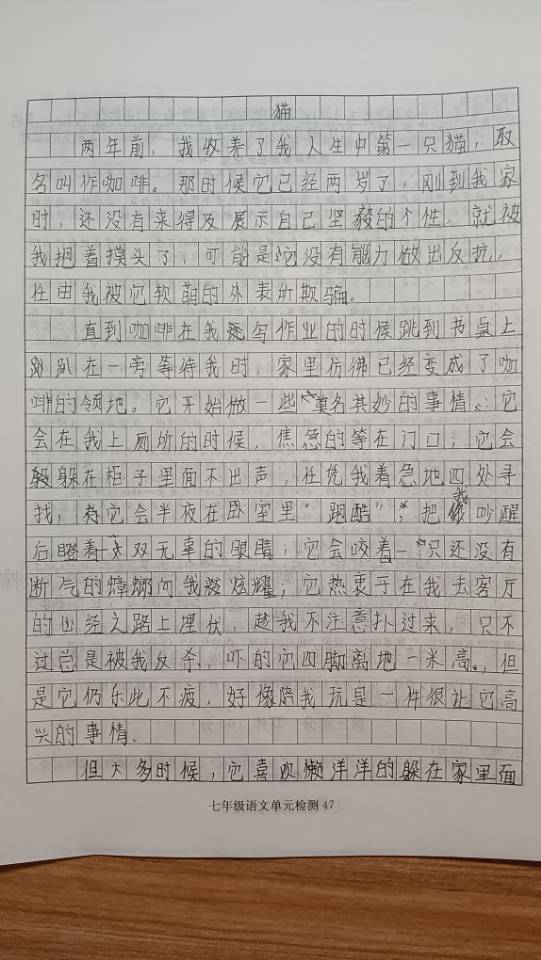 猫
两年前，我收养了我人生中第一只猫，取
名叫作咖啡。那时候它已经两岁了，刚到我家
时，还没有来得及展示自己坚毅的个性，就被
我抱着摸头了，可能是它没有能力做出反抗，
任由我被它软萌的外表所欺骗。
直到咖啡在我写作业的时候跳到书桌上
趴在一旁等待我时，家里仿佛已经变成了咖
啡的领地。它开始做一些莫名其妙的事情：它
会在我上厕所的时候，焦急的等在门口；它会
躲在柜子里面不出声，任凭我着急地四处寻
找，它会半夜在卧室里“跑酷”，把我吵醒
后瞪着一双无辜的眼睛；它会咬着一只还没有
断气的蟑螂向我炫耀；它热衷于在我去客厅
的必经之路上埋伏，趁我不注意扑过来，只不
过总是被我反杀，吓的它四脚离地一米高。但
是它仍乐此不疲，好像陪我玩是一件很让它高
兴的事情。
但大多时候，它喜欢懒洋洋的躲在家里面
七年级语文单元检测 47